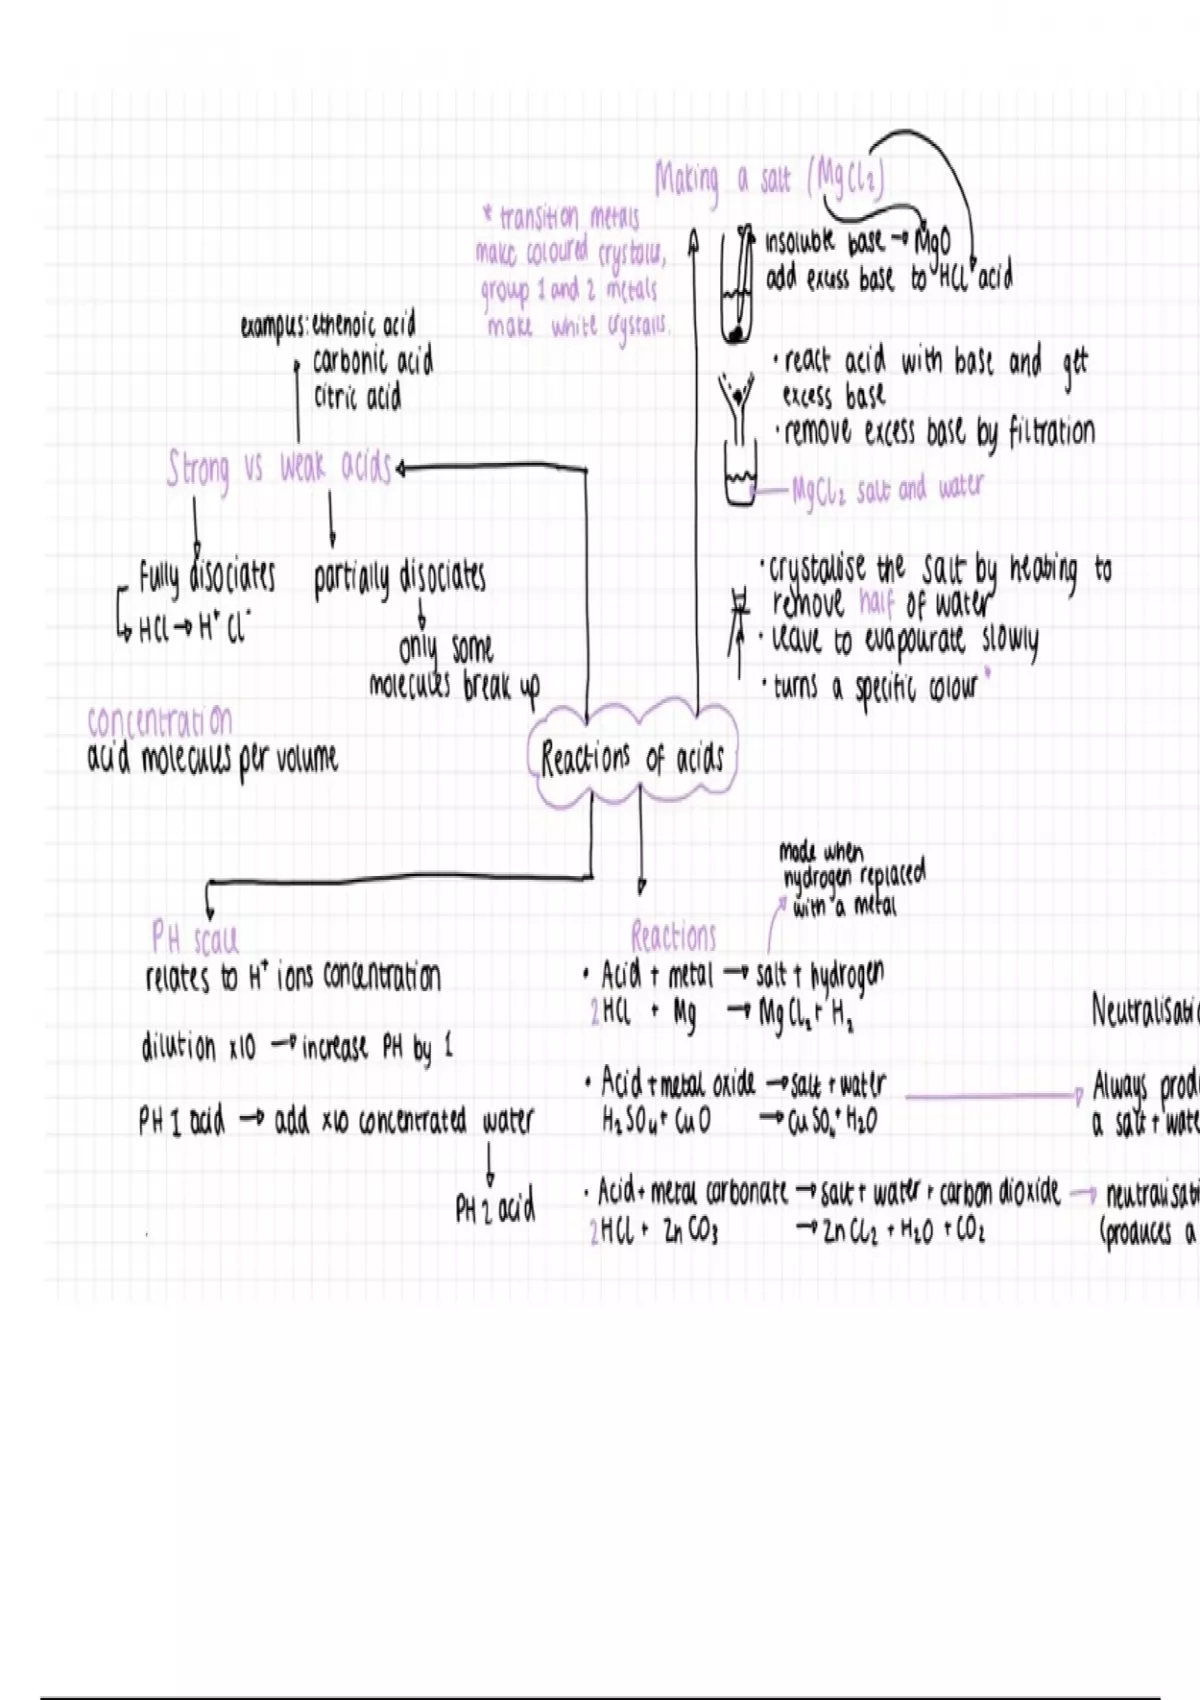 Making a salt (MgCl₂)
* transition metals
make coloured crystalls,
group 1 and 2 metals
make white crystalls.
insoluble base → MgO
add excess base to HCL acid
• react acid with base and get
excess base
• remove excess base by filtration
MgCl₂ salt and water
• crystallise the salt by heating to
remove half of water
• leave to evapourate slowly
• turns a specific colour *
examples: ethenoic acid
carbonic acid
citric acid
Strong vs weak acids
fully disociates
HCL → H⁺ Cl⁻
partially disociates
only some
molecules break up
concentration
acid molecules per volume
Reactions of acids
PH scale
relates to H⁺ ions concentration
dilution x10 → increase PH by 1
PH 1 acid → add x10 concentrated water
PH 2 acid
made when
hydrogen replaced
with a metal
Reactions
• Acid + metal → salt + hydrogen
2HCL + Mg → MgCl₂ + H₂
Neutralisatio
• Acid + metal oxide → salt + water
H₂SO₄ + CuO → CuSO₄ + H₂O
Always prod
a salt + wate
• Acid + metal carbonate → salt + water + carbon dioxide → neutralisati
2HCL + ZnCO₃ → ZnCl₂ + H₂O + CO₂
(produces a